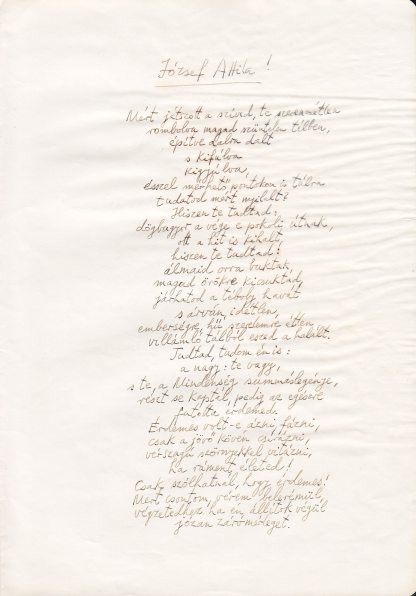 József Attila!
Mért játszott a szíved, te szerencsétlen
rombolva magad szüntelen tilben,
építve dalra dalt
s kifúlva
kigyúlva,
ésszel mérhető pontokon is túlra
tudatod mért nyilalt?
Hiszen te tudtad:
dögbugyor a vége e pokoli útnak,
ott a hit is kihalt,
hiszen te tudtad:
álmaid orra buktak,
magad örökre kicsuktad,
járhatod a téboly havát
s árván, idétlen,
emberségre, hű szerelemre éhen
villámló tálból eszed a halált.
Tudtad, tudom én is:
a nagy: te vagy,
s te, a Mindenség summáslegénye,
részt se kaptál, pedig az egészre
futotta érdemed.
Érdemes volt-e ázni, fázni,
csak a jövő kövén csírázni,
vérszagú szörnyekkel vitázni,
ha ráment életed!
Csak szólhatnál, hogy érdemes!
Mert csontom, vérem belerémül,
végzetedhez ha én állítok végül
józan zárómérleget.